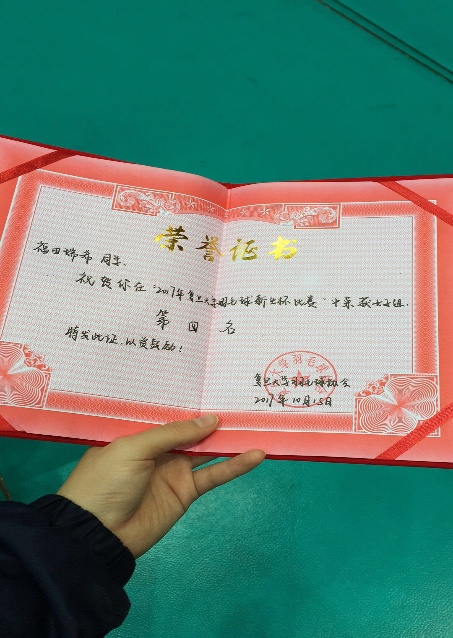 荣誉证书
福田瑞希 同学:
祝贺你在"2017年复旦大学羽毛球新生杯比赛"中荣获女子组
第四名
特发此证,以资鼓励!
复旦大学羽毛球协会
2017年10月15日